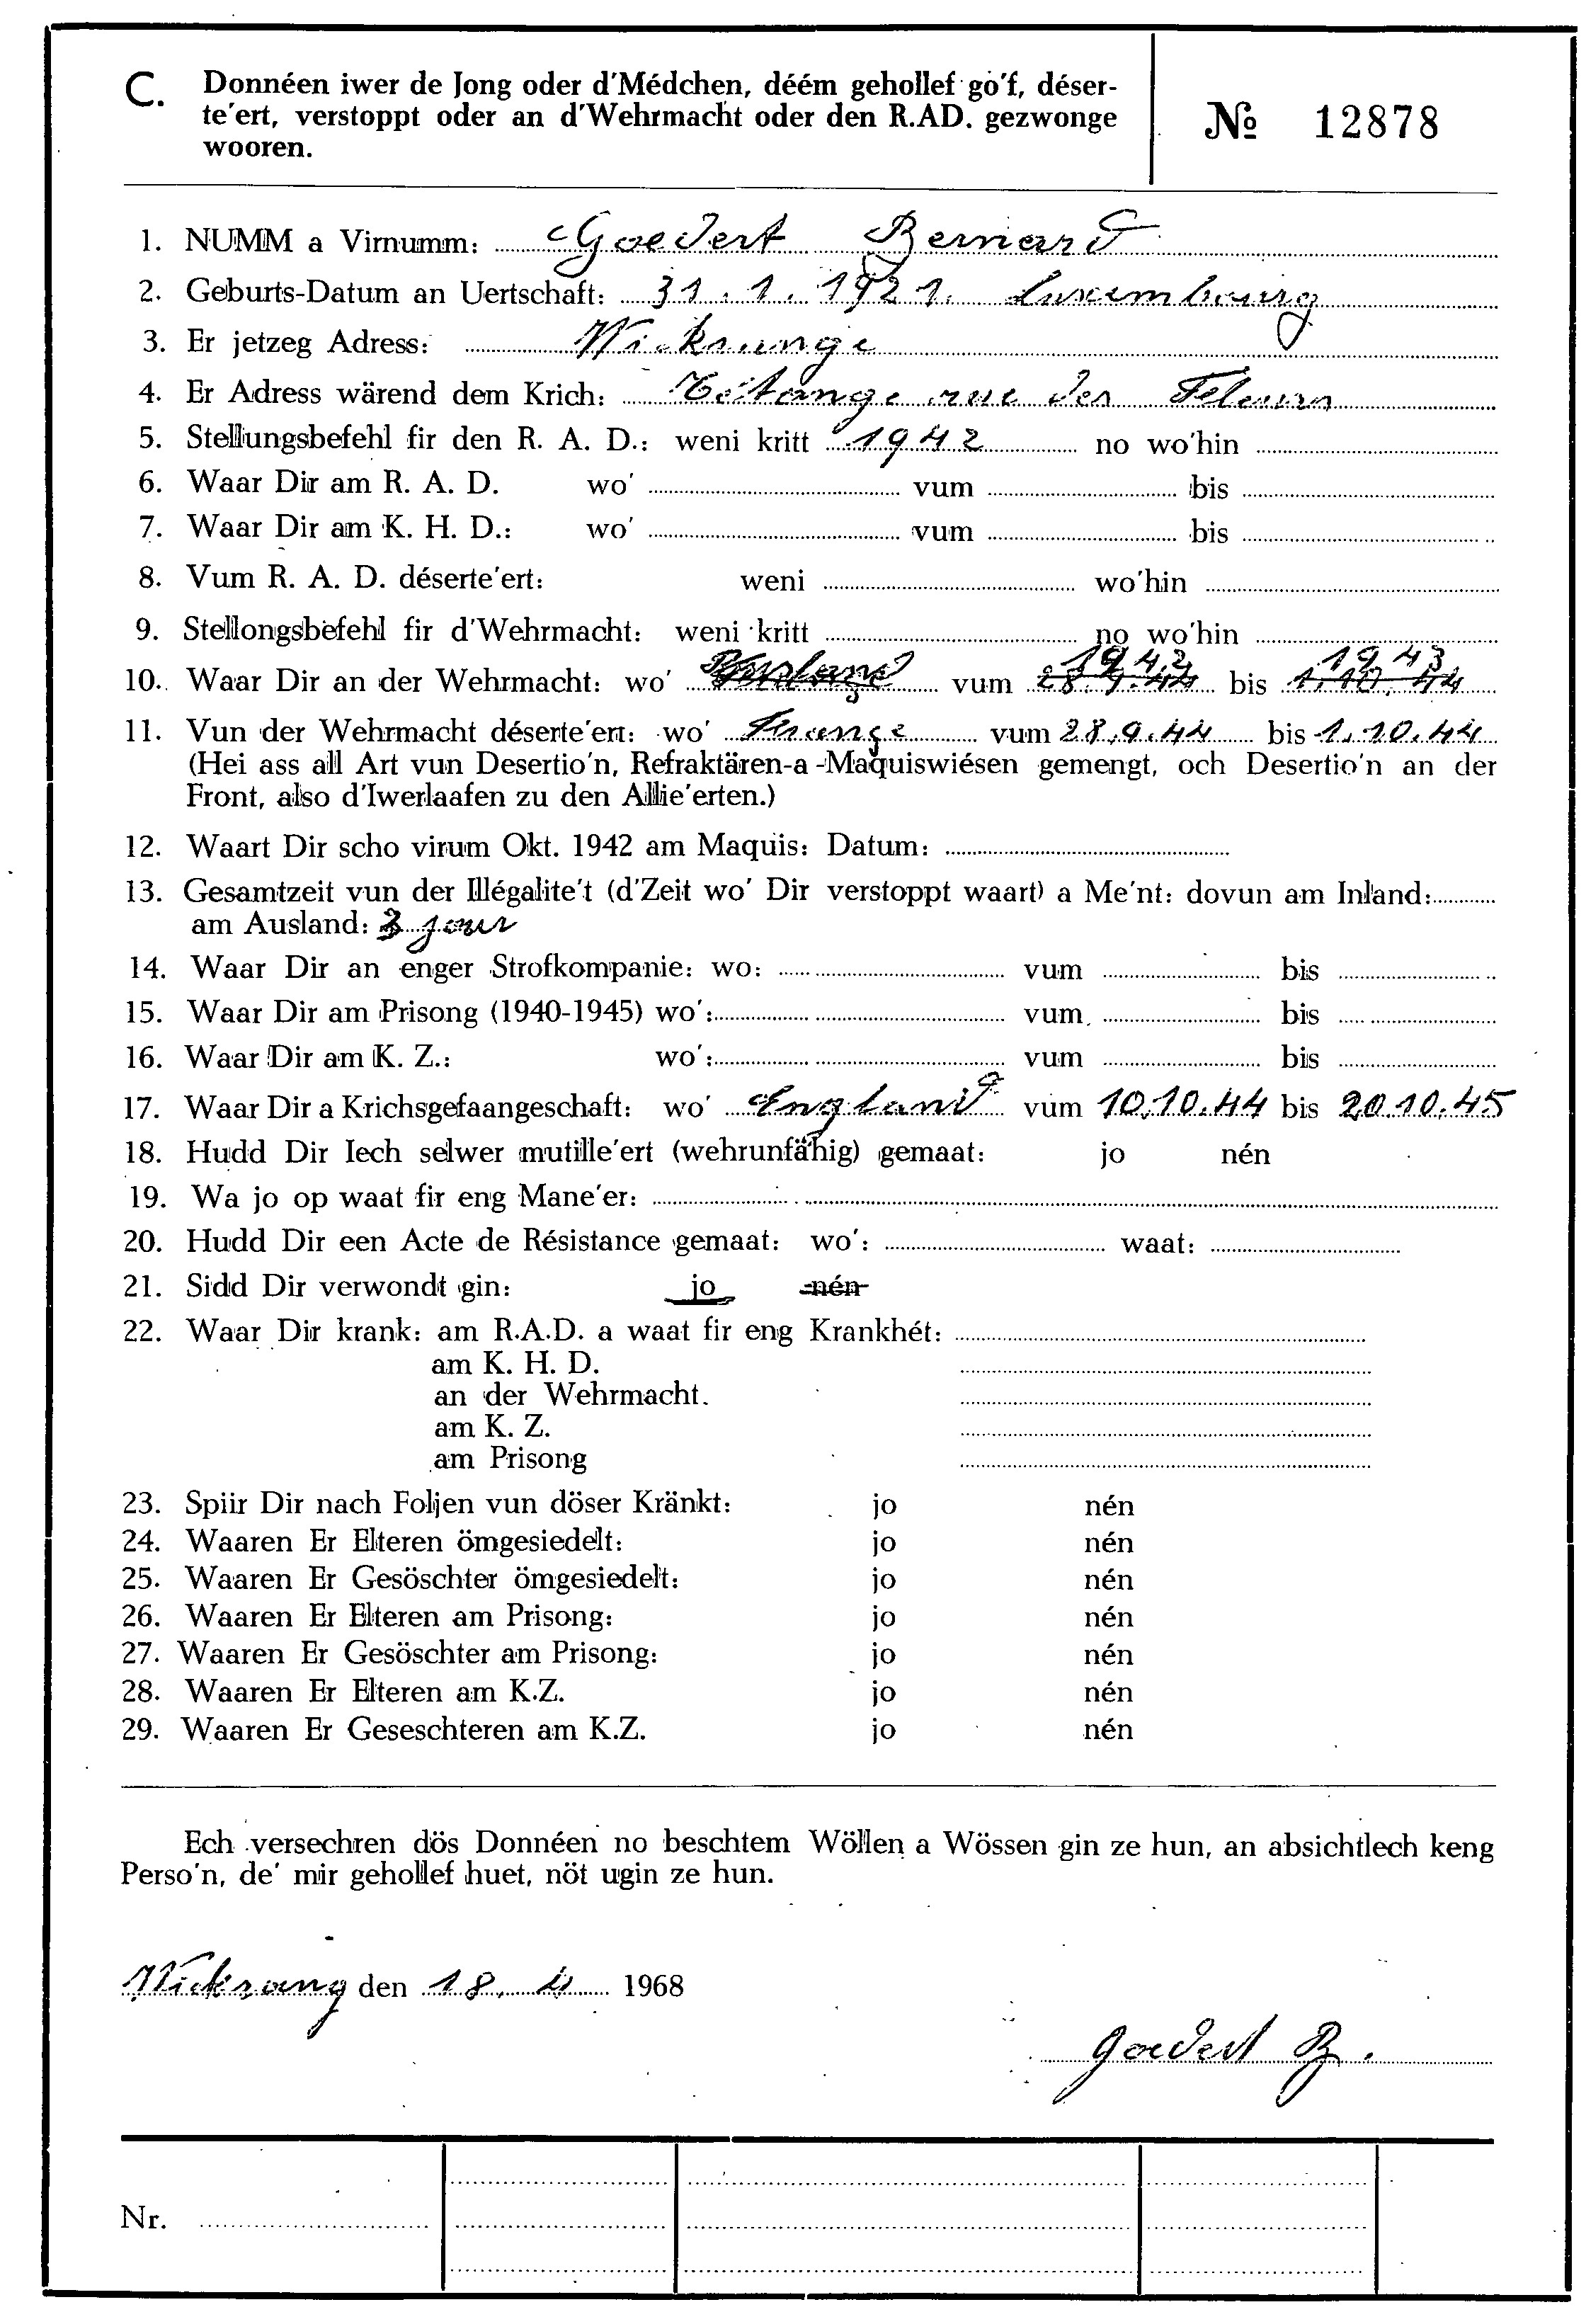 C. Donnéen iwer de Jong oder d'Médchen, déém gehollef go'f, déser-
te'ert, verstoppt oder an d'Wehrmacht oder den R.AD. gezwonge
wooren.
№ 12878
1. NUMM a Virnumm: Goedert Bernard
2. Geburts-Datum an Uertschaft: 31.1.1921. Luxembourg
3. Er jetzeg Adress: Wickrange
4. Er Adress wärend dem Krich: Tétange rue des
5. Stellungsbefehl fir den R. A. D.: weni kritt 1942 no wo'hin
6. Waar Dir am R. A. D. wo' vum bis
7. Waar Dir am K. H. D.: wo' vum bis
8. Vum R. A. D. déserte'ert: weni wo'hin
9. Stellongsbefehl fir d'Wehrmacht: weni kritt no wo'hin
10. Waar Dir an der Wehrmacht: wo' vum 28.9.44 1942 bis 1.10.44 1943
11. Vun der Wehrmacht déserte'ert: wo' France vum 28.9.44 bis 1.10.44
(Hei ass all Art vun Desertio'n, Refraktären-a-Maquiswiésen gemengt, och Desertio'n an der
Front, also d'Iwerlaafen zu den Allie'erten.)
12. Waart Dir scho virum Okt. 1942 am Maquis: Datum:
13. Gesamtzeit vun der Illégalite't (d'Zeit wo' Dir verstoppt waart) a Me'nt: dovun am Inland:
am Ausland: 3 jour
14. Waar Dir an enger Strofkompanie: wo: vum bis
15. Waar Dir am Prisong (1940-1945) wo': vum bis
16. Waar Dir am K. Z.: wo': vum bis
17. Waar Dir a Krichsgefaangeschaft: wo' England vum 10.10.44 bis 20.10.45
18. Hudd Dir Iech selwer mutille'ert (wehrunfähig) gemaat: jo nén
19. Wa jo op waat fir eng Mane'er:
20. Hudd Dir een Acte de Résistance gemaat: wo': waat:
21. Sidd Dir verwondt gin: jo nén
22. Waar Dir krank: am R.A.D. a waat fir eng Krankhét:
am K. H. D.
an der Wehrmacht.
am K. Z.
am Prisong
23. Spiir Dir nach Foljen vun döser Kränkt: jo nén
24. Waaren Er Elteren ömgesiedelt: jo nén
25. Waaren Er Gesöschter ömgesiedelt: jo nén
26. Waaren Er Elteren am Prisong: jo nén
27. Waaren Er Gesöschter am Prisong: jo nén
28. Waaren Er Elteren am K.Z. jo nén
29. Waaren Er Geseschteren am K.Z. jo nén
Ech versechren dös Donnéen no beschtem Wöllen a Wössen gin ze hun, an absichtlech keng
Perso'n, de' mir gehollef huet, nöt ugin ze hun.
Wickrang den 18. 4 1968
Goedert B.
Nr.